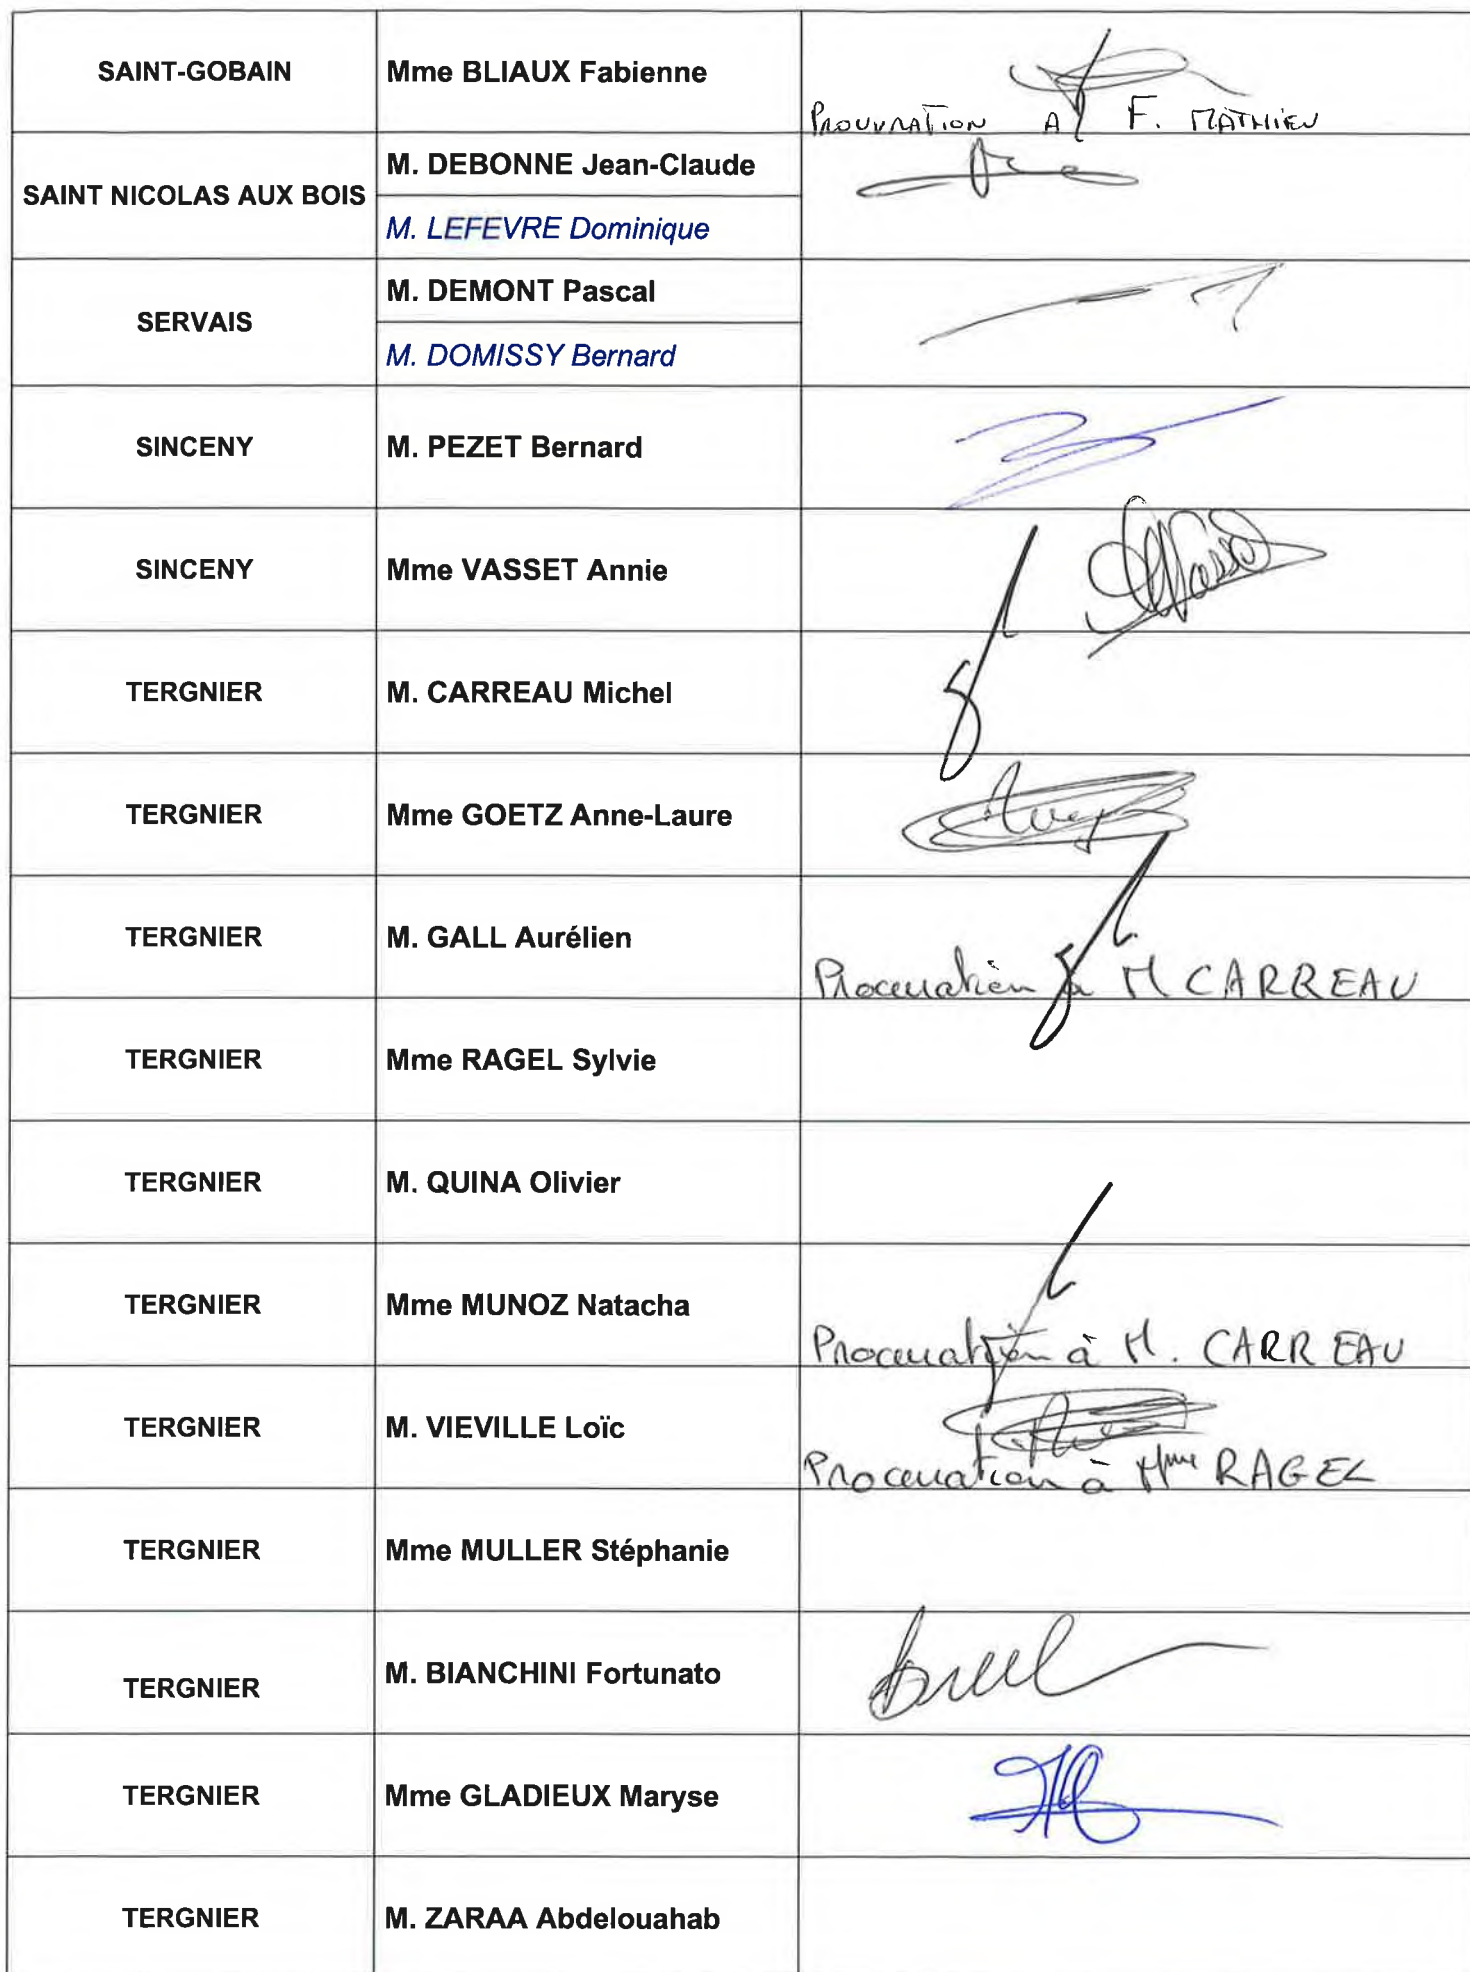 SAINT-GOBAIN
Mme BLIAUX Fabienne
PROUVRATION A F. MATHIEU
SAINT NICOLAS AUX BOIS
M. DEBONNE Jean-Claude
M. LEFEVRE Dominique
SERVAIS
M. DEMONT Pascal
M. DOMISSY Bernard
SINCENY
M. PEZET Bernard
SINCENY
Mme VASSET Annie
TERGNIER
M. CARREAU Michel
TERGNIER
Mme GOETZ Anne-Laure
TERGNIER
M. GALL Aurélien
Procuration à M CARREAU
TERGNIER
Mme RAGEL Sylvie
TERGNIER
M. QUINA Olivier
TERGNIER
Mme MUNOZ Natacha
Procuration à M. CARREAU
TERGNIER
M. VIEVILLE Loïc
Procuration à Mme RAGEL
TERGNIER
Mme MULLER Stéphanie
TERGNIER
M. BIANCHINI Fortunato
TERGNIER
Mme GLADIEUX Maryse
TERGNIER
M. ZARAA Abdelouahab